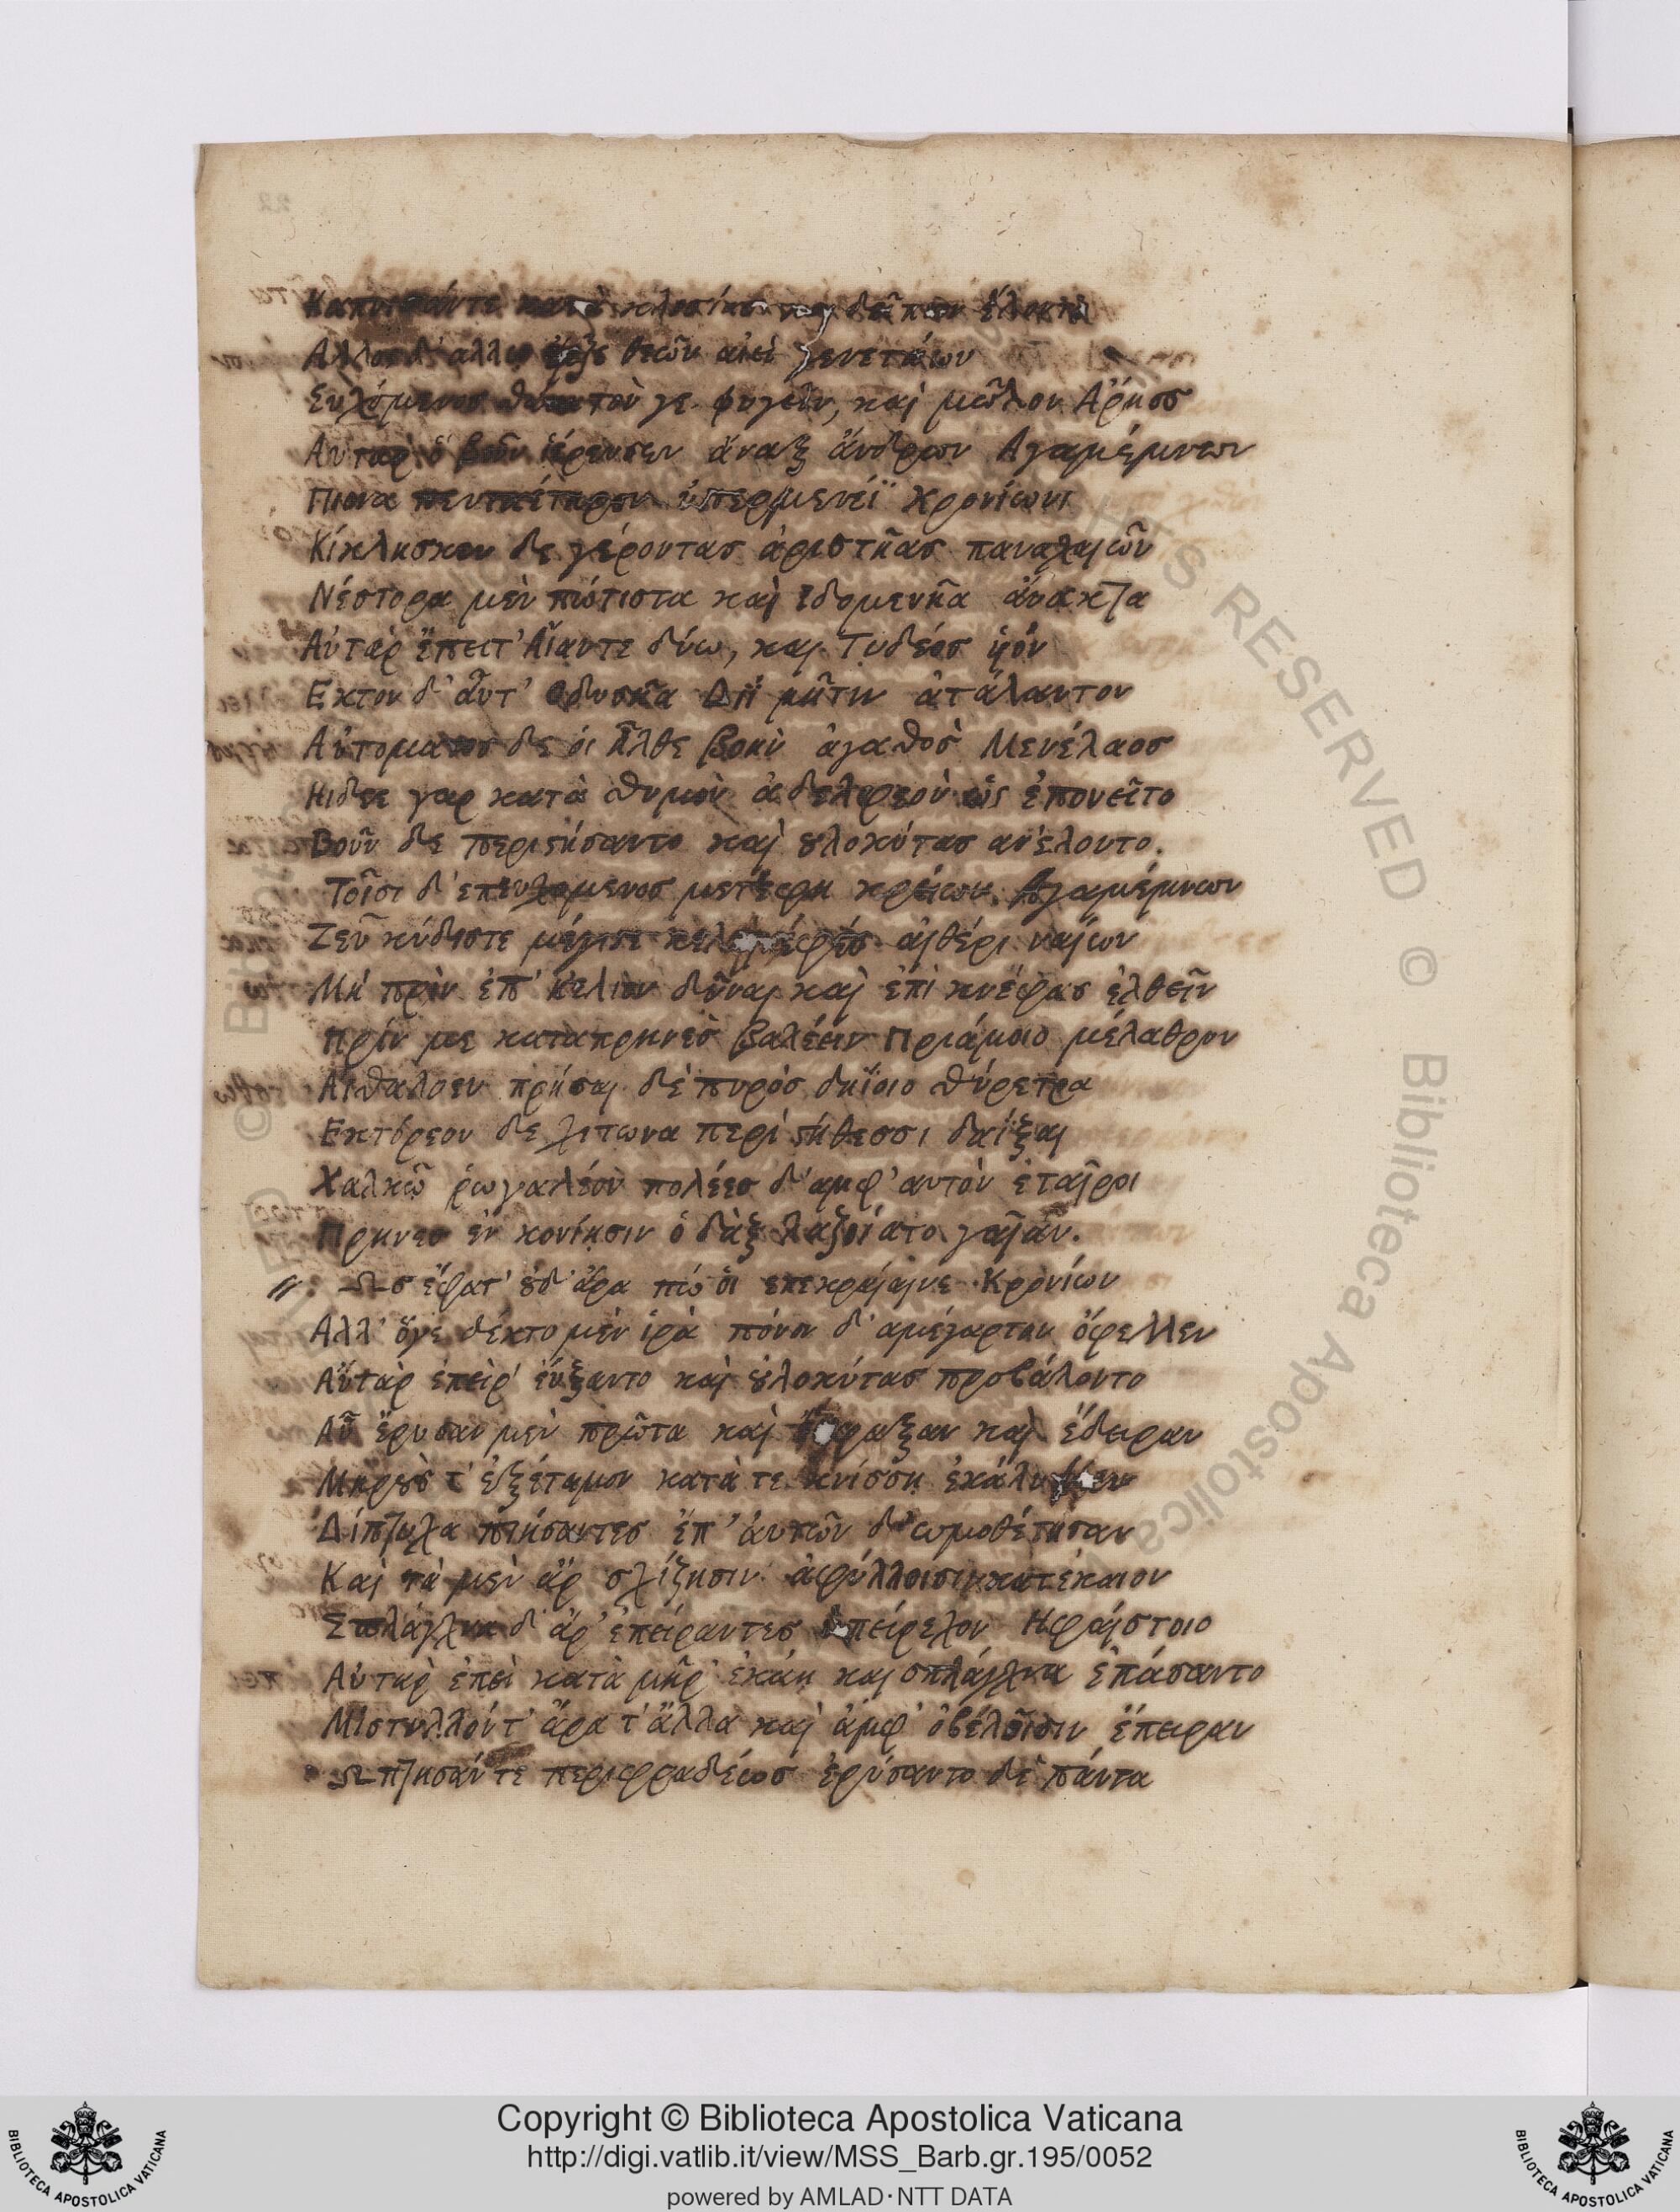 Καπνισσάντε κατὰ κλισίασ καὶ δεῖπνον ἕλοντο
Αλλοσ δ' αλλω ἔρεζε θεῶν αἰεὶ γενετάων
Ευχόμενοσ θάνατόν γε φυγεῖν, καὶ μῶλον Αρηοσ
Αυταρ ὁ βοῦν ἱέρευσεν ἄναξ ἄνδρων Αγαμέμνων
Πιονα πενταέτηρον ὑπερμενέϊ Κρονίωνι
Κίκλησκεν δε γέροντασ ἀριστῆασ παναχαιῶν
Νέστορα μὲν πρώτιστα καὶ Ιδομενῆα ἄνακτα
Αὐτὰρ ἔπειτ' Αἴαντε δύω, και Τυδέοσ ὑόν
Εκτον δ' αὖτ' Οδυσῆα Διῒ μῆτιν ἀτάλαντον
Αὐτοματοσ δε ὁι ἦλθε βοὴν ἀγαθοσ Μενέλαοσ
Ηιδεε γαρ κατὰ θυμὸν ἀδελφεὸν ὡς ἐπονεῖτο
Βοῦν δε περιστήσαντο καὶ ουλοχύτασ ανέλοντο.
Τοῖσι δ' επευχομενοσ μετέφη κρείων Αγαμέμνων
Ζεῦ κύδιστε μέγιστε κελαινεφέσ αἰθέρι ναίων
Μή πρὶν ἐπ' ηελιον δῦναι καὶ ἐπὶ κνέφασ ἐλθεῖν
Πρίν με καταπρηνεσ βαλέειν Πριάμοιο μέλαθρον
Αιθαλοεν πρήσαι δὲ πυρόσ δηΐοιο θύρετρα
Εκτόρεον δε χιτωνα περί στήθεσσι δαίξαι
Χαλκῶ ῥωγαλέον πολέεσ δ' αμφ' αυτὸν ἑταῖροι
Πρηνεσ ἐν κονίησιν ὀδὰξ λαζοίατο γαῖαν.
〃 Ωσ ἔφατ' ουδ' ἄρα πώ ὁι επεκραίαινε Κρονίων
Αλλ' ὅγε δέκτο μὲν ἱρὰ πόνον δ' αμέγαρτον ὄφελλεν
Αὐτὰρ ἐπεὶρ' ἐύξαντο καὶ ουλοχύτασ προβάλοντο
Αὖ ἔρυσαν μὲν πρῶτα καὶ ἔσφαξαν καὶ ἔδειραν
Μηρουσ τ' ἐξέταμον κατὰ τε κνίσση ἐκάλυψαν
Δίπτυχα ποιήσαντεσ ἔπ' ἀυτῶν δ' ωμοθέτησαν
Καὶ τὰ μὲν ἄρ σχίζησιν ἀφύλλοισιν κατέκαιον
Σπλάγχνα δ' ἄρ' ἐπείραντεσ ὑπείρεχον Ηφαίστοιο
Αὐταρ ἐπεὶ κατὰ μῆρ' ἐκάη και σπλάγχνα ἐπάσαντο
Μίστυλλόντ' ἄρα τ' ἄλλα καὶ ἀμφ' ὀβέλοῖσιν ἔπειραν
Ωπτησάν τε περιφραδέωσ ἐρύσαντο δὲ πάντα
Copyright © Biblioteca Apostolica Vaticana
http://digi.vatlib.it/view/MSS_Barb.gr.195/0052
powered by AMLAD·NTT DATA